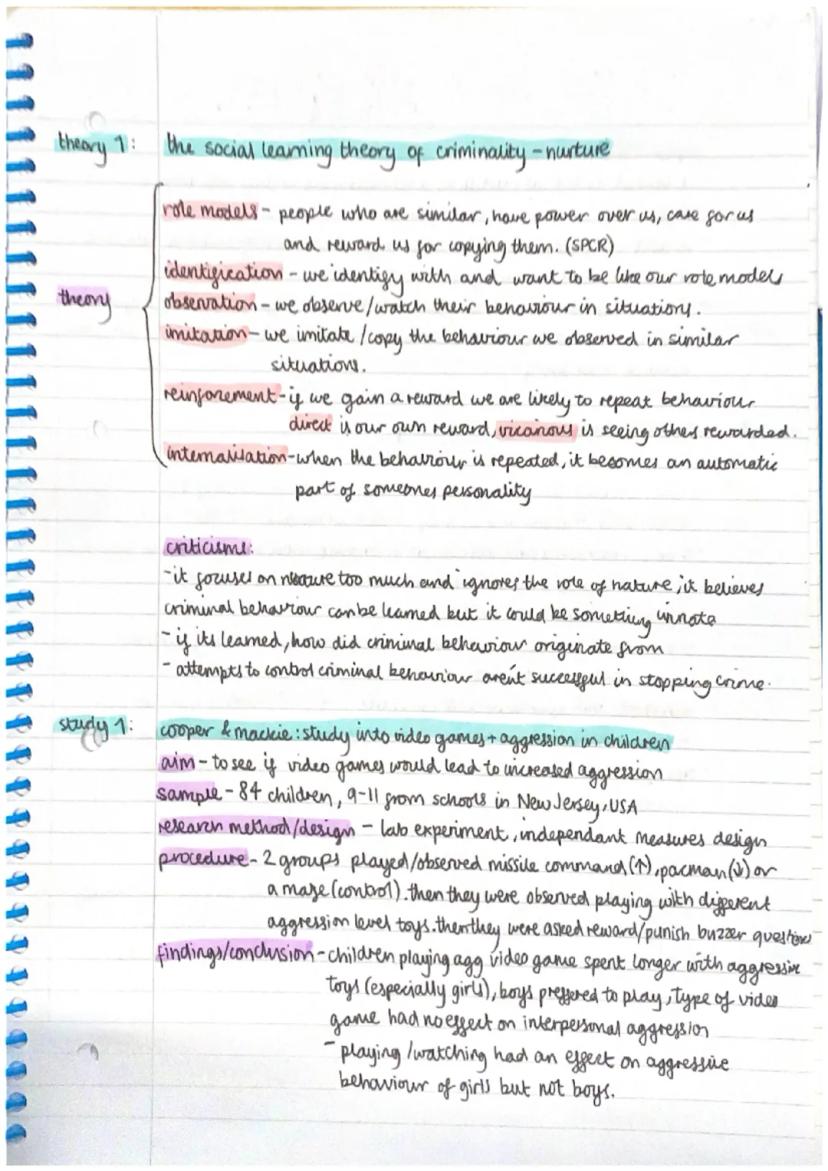 theory 1: the social learning theory of criminality - nurture
role models - people who are similar, have power over us, care for us
and reward us for copying them. (SPCR)
identification - we identify with and want to be like our role models
theory
observation - we observe/watch their behaviour in situations.
imitation - we imitate/copy the behaviour we observed in similar
situations.
reinforement - if we gain a reward we are likely to repeat behaviour
direct is our own reward, vicarious is seeing others rewarded.
internalisation - when the behaviour is repeated, it becomes an automatic
part of someones personality
criticisms:
- it focuses on nurture too much and ignores the role of nature, it believes
criminal behaviour can be learned but it could be something innate
- if its learned, how did criminal behaviour originate from
- attempts to control criminal behaviour aren't successful in stopping crime.
study 1: cooper & mackie: study into video games + aggression in children
aim - to see if video games would lead to increased aggression
sample - 84 children, 9-11 from schools in New Jersey, USA
research method/design - lab experiment, independant measures design
procedure - 2 groups played/observed missile command (↑), pacman (↓) or
a maze (control). then they were observed playing with different
aggression level toys. then they were asked reward/punish buzzer questions
findings/conclusion - children playing agg video game spent longer with aggressive
toys (especially girls), boys preffered to play, type of video
game had no effect on interpersonal aggression
- playing/watching had an effect on aggressive
behaviour of girls but not boys.